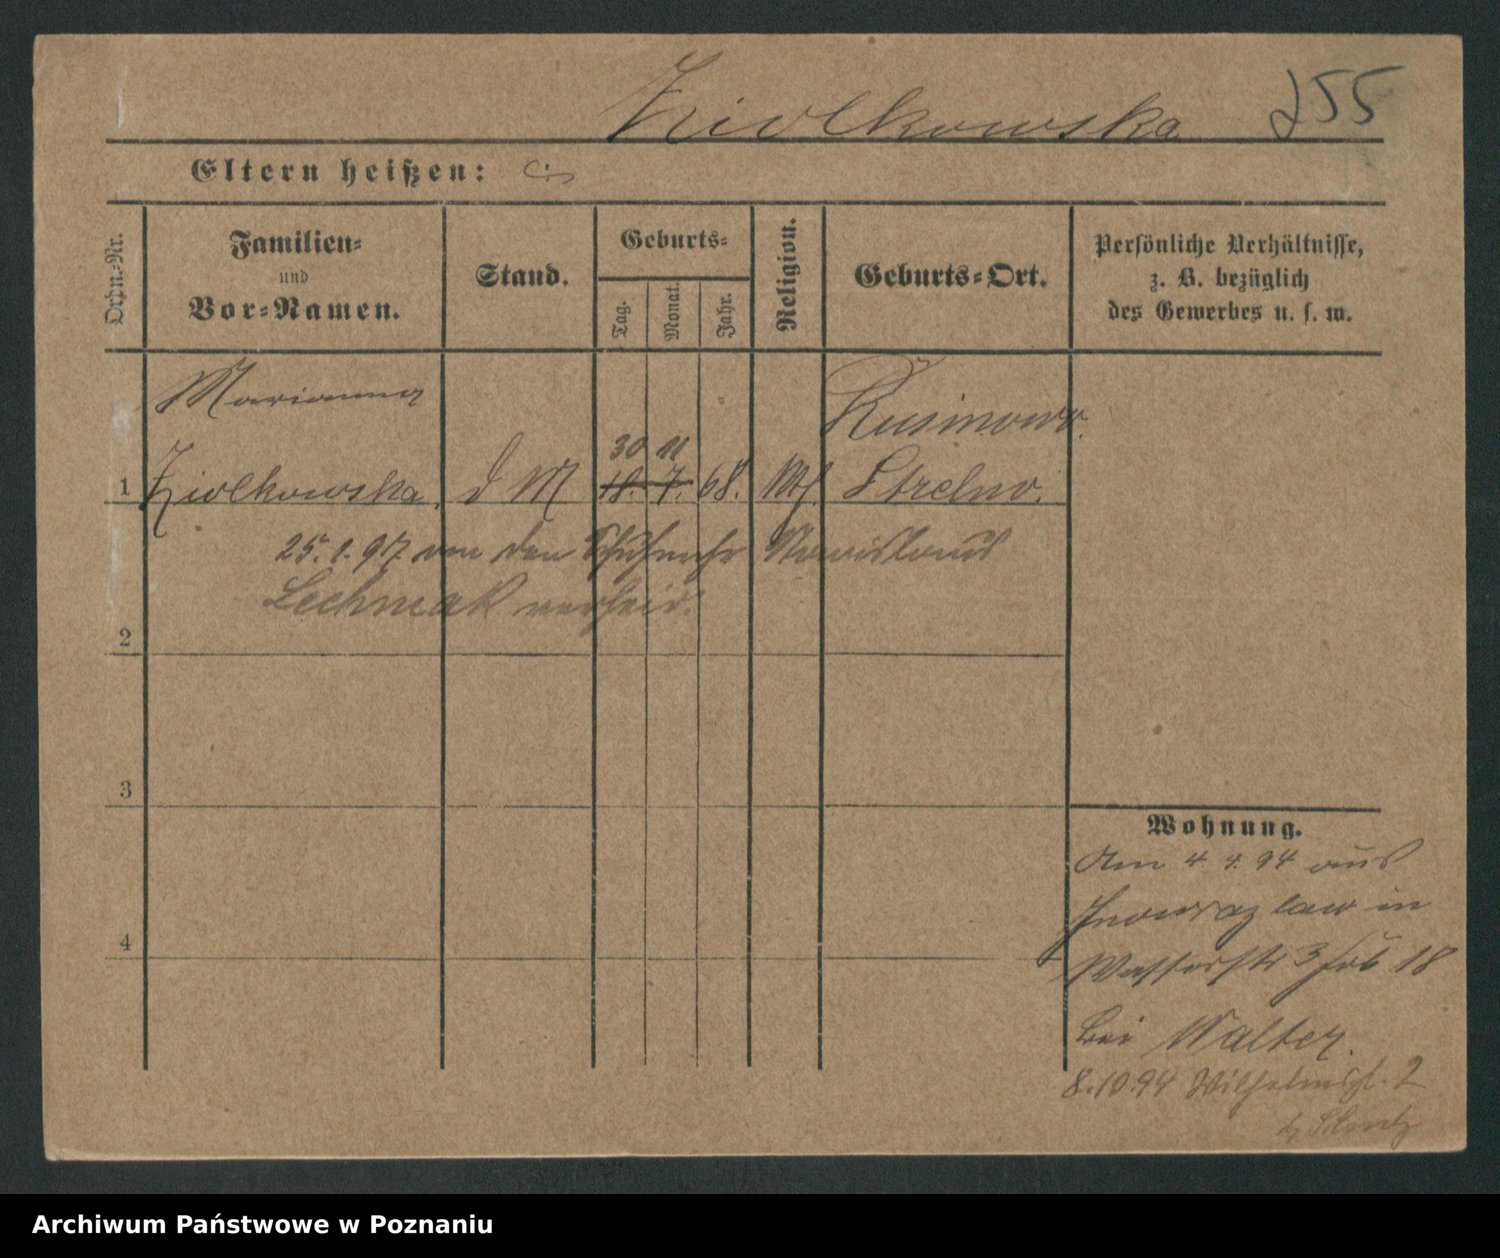 Ziolkowska 255
Eltern heißen:
Ordn.-Nr.
Familien-
und
Vor-Namen.
Stand.
Geburts-
Tag.
Monat.
Jahr.
Religion.
Geburts-Ort.
Persönliche Verhältnisse,
z. B. bezüglich
des Gewerbes u. s. w.
Marianna
Kusinowo.
30 11
1 Ziolkowska. d M 18. 7. 68. Kth Strelno.
25.1.97 von den Stanislaus
Lechniak
2
3
4
Wohnung.
Am 4. 4. 94 aus
Inowrazlaw in
Wasserstr 3 18
bei Walter.
8.10.94 Wilhelmspl. 2
b
Archiwum Państwowe w Poznaniu